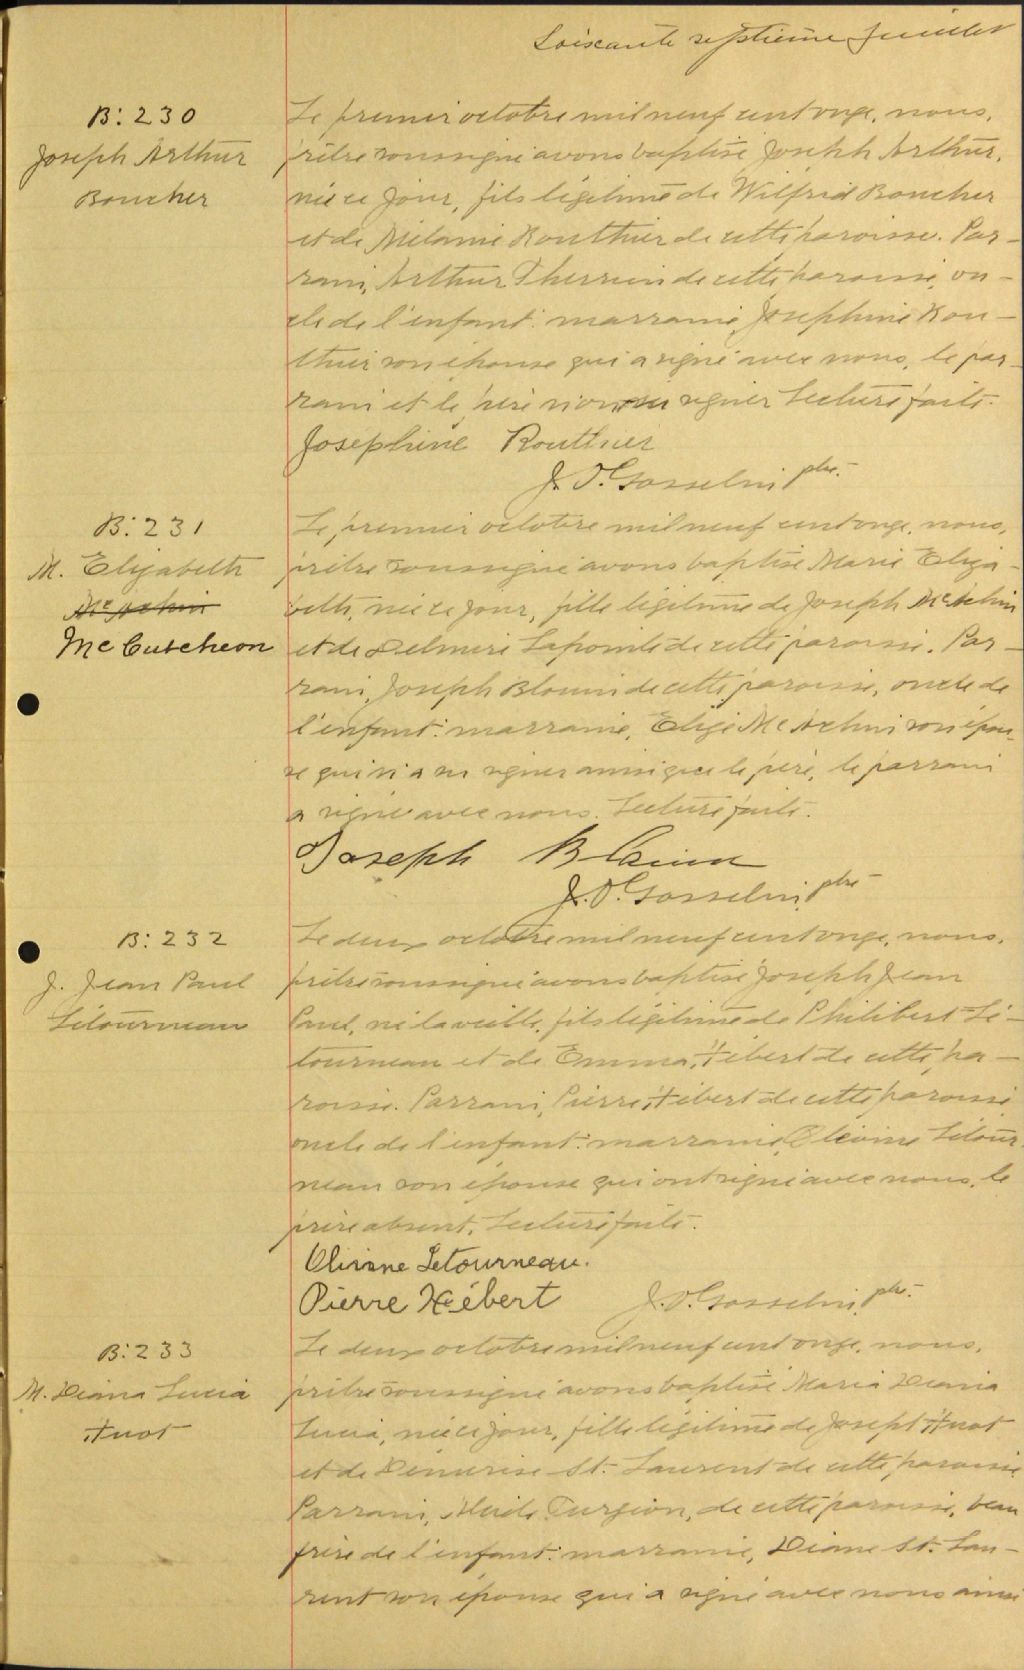 Soixante septième feuillet
B: 230
Joseph Arthur
Boucher
Le premier octobre mil neuf cent onze, nous,
prêtre soussigné avons baptisé Joseph Arthur,
né ce jour, fils légitime de Wilfrid Boucher
et de Mélanie Routhier de cette paroisse. Par-
rain, Arthur Therrien de cette paroisse, on-
cle de l'enfant: marraine, Josephine Rou-
thier son épouse qui a signé avec nous, le par-
rain et le père n'ont su signer Lecture faite.
Joséphine Routhier
J. O. Gosselin ptre.
B: 231
M. Elizabeth
McAchin
McCutcheon
Le premier octobre mil neuf cent onze, nous,
prêtre soussigné avons baptisé Marie Eliza-
beth, née ce jour, fille légitime de Joseph McAchin
et de Delmire Lapointe de cette paroisse. Par-
rain, Joseph Blouin de cette paroisse, oncle de
l'enfant: marraine, Elize McAchin son épou-
se qui n'a su signer ainsi que le père, le parrain
a signé avec nous. Lecture faite.
Joseph Blouin
J. O. Gosselin, ptre
B: 232
J. Jean Paul
Létourneau
Le deux octobre mil neuf cent onze, nous,
prêtre soussigné avons baptisé Joseph Jean
Paul, né la veille, fils légitime de Philibert Lé-
tourneau et de Emma Hébert de cette pa-
roisse. Parrain, Pierre Hébert de cette paroisse
oncle de l'enfant: marraine, Olivine Létour-
neau son épouse qui ont signé avec nous, le
père absent. Lecture faite.
Olivine Letourneau.
Pierre Hébert
J. O. Gosselin, ptre.
B: 233
M. Diana Lucia
Huot
Le deux octobre mil neuf cent onze, nous,
prêtre soussigné avons baptisé Maria Diana
Lucia, née ce jour, fille légitime de Joseph Huot
et de Démerise St. Laurent de cette paroisse
Parrain, Alcide Turgeon, de cette paroisse, beau
frère de l'enfant: marraine, Diana St. Lau-
rent son épouse qui a signé avec nous ainsi